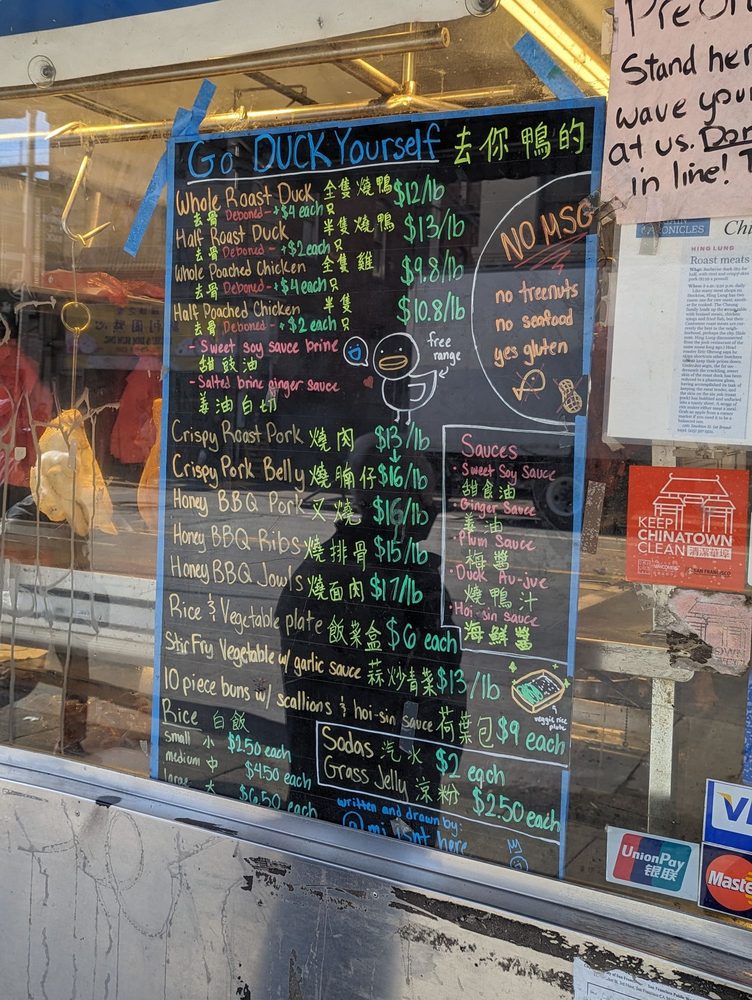 Go DUCK Yourself 去你鴨的
Whole Roast Duck 全隻燒鴨 $12/lb
去骨 Deboned - +$4 each 只
Half Roast Duck 半隻燒鴨 $13/lb
去骨 Deboned - +$2 each 只
Whole Poached Chicken 全隻雞 $9.8/lb
去骨 Deboned - +$4 each 只
Half Poached Chicken 半隻 $10.8/lb
去骨 Deboned - +$2 each 只
- Sweet soy sauce brine
甜豉油
- Salted brine ginger sauce
姜油白切
free
range
NO MSG
no treenuts
no seafood
yes gluten
Crispy Roast Pork 燒肉 $13/lb
Crispy Pork Belly 燒腩仔 $16/lb
Honey BBQ Pork 叉燒 $16/lb
Honey BBQ Ribs 燒排骨 $15/lb
Honey BBQ Jowls 燒面肉 $17/lb
Rice & Vegetable plate 飯菜盒 $6 each
Stir Fry Vegetable w/ garlic sauce 蒜炒青菜 $13/lb
10 piece buns w/ scallions & hoi-sin sauce 荷葉包 $9 each
veggie rice
plate
Sauces
· Sweet Soy Sauce
甜食油
· Ginger Sauce
姜油
· Plum Sauce
梅醬
· Duck Au-jue
燒鴨汁
· Hoi-sin sauce
海鮮醬
Rice 白飯
small 小 $2.50 each
medium 中 $4.50 each
large 大 $6.50 each
Sodas 汽水 $2 each
Grass Jelly 涼粉 $2.50 each
written and drawn by:
@mi isnt here
Stand her
wave you
at us. Don
in line!
HING LUNG
Roast meats
KEEP
CHINATOWN
CLEAN 清潔華埠
SAN FRANCISCO
UnionPay
银联
Maste